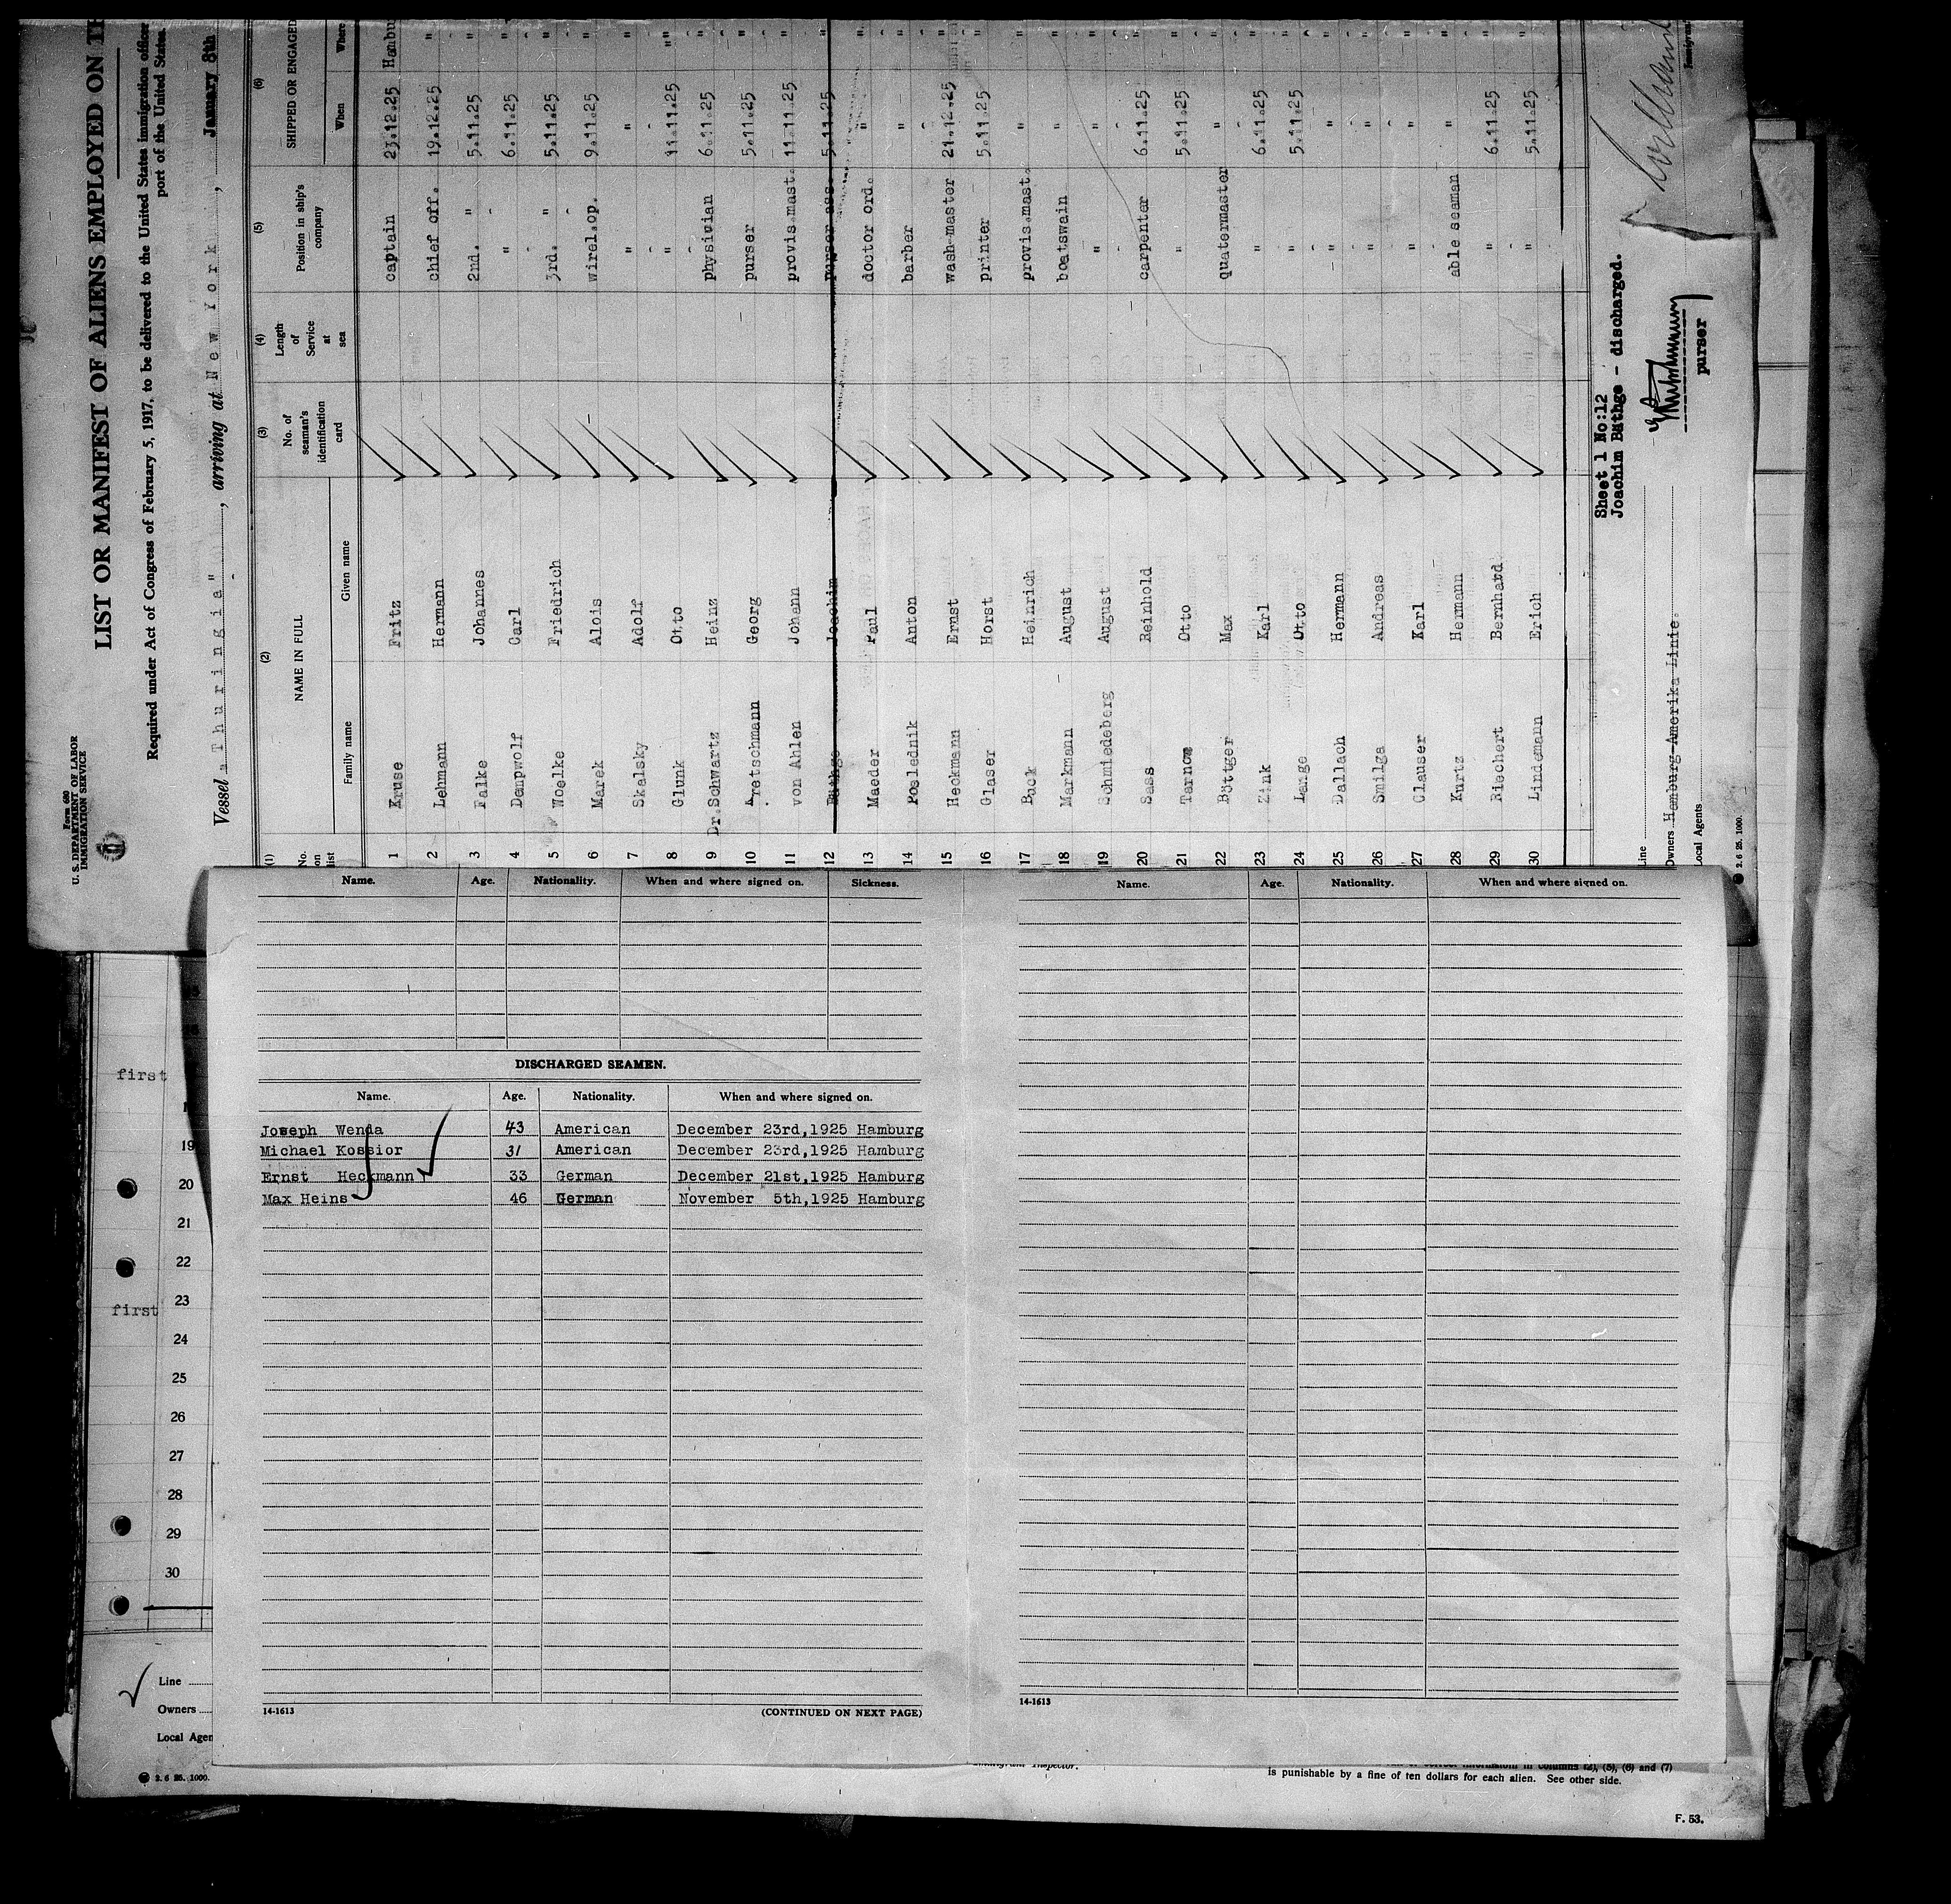 Form 680
U. S. DEPARTMENT OF LABOR
IMMIGRATION SERVICE
LIST OR MANIFEST OF ALIENS EMPLOYED ON
Required under Act of Congress of February 5, 1917, to be delivered to the United States immigration officer
port of the United States.
Vessel "Thuringia", arriving at New York, January 8th
(1) (2) (3) (4) (5) (6)
No. on list NAME IN FULL No. of seaman's identification card Length of Service at sea Position in ship's company SHIPPED OR ENGAGED
Family name Given name When Where
1 Kruse Fritz captain 23.12.25 Hambu
2 Lehmann Hermann chief off. 19.12.25 "
3 Falke Johannes 2nd. " 5.11.25 "
4 Dempwolf Carl " 6.11.25 "
5 Woelke Friedrich 3rd. " 5.11.25 "
6 Marek Alois wirel.op. 9.11.25 "
7 Skalsky Adolf " " "
8 Glunk Otto " 11.11.25 "
9 Dr.Schwartz Heinz physician 6.11.25 "
10 Kretschmann Georg purser 5.11.25 "
11 von Ahlen Johann provis.mast. 11.11.25 "
12 Bäthge Joachim purser ass. 5.11.25 "
13 Maeder Paul doctor ord. " "
14 Poslednik Anton barber " "
15 Heckmann Ernst wash-master 21.12.25 "
16 Glaser Horst printer 5.11.25 "
17 Buck Heinrich provis.mast. " "
18 Markmann August boatswain " "
19 Schmiedeberg August " " "
20 Sass Reinhold carpenter 6.11.25 "
21 Tarnow Otto " 5.11.25 "
22 Böttger Max quatermaster " "
23 Zink Karl " 6.11.25 "
24 Lange Otto " 5.11.25 "
25 Dallach Hermann " " "
26 Smilga Andreas " " "
27 Clauser Karl " " "
28 Kurtz Hermann able seaman " "
29 Riechert Bernhard " 6.11.25 "
30 Lindemann Erich " 5.11.25 "
Sheet 1 No:12
Joachim Bäthge - discharged.
purser
Line
Owners Hamburg-Amerika Linie.
Local Agents
2. 6 25. 1000.
Name. Age. Nationality. When and where signed on. Sickness.
DISCHARGED SEAMEN.
Name. Age. Nationality. When and where signed on.
Joseph Wenda 43 American December 23rd,1925 Hamburg
Michael Kossior 31 American December 23rd,1925 Hamburg
Ernst Heckmann 33 German December 21st,1925 Hamburg
Max Heins 46 German November 5th,1925 Hamburg
14-1613 (CONTINUED ON NEXT PAGE)
Name. Age. Nationality. When and where signed on.
14-1613
first
19
20
21
22
23
first
24
25
26
27
28
29
30
Line
Owners
Local Agen
2. 6 25. 1000.
Immigrant Inspector.
information in columns (2), (5), (6) and (7)
is punishable by a fine of ten dollars for each alien. See other side.
F. 53.